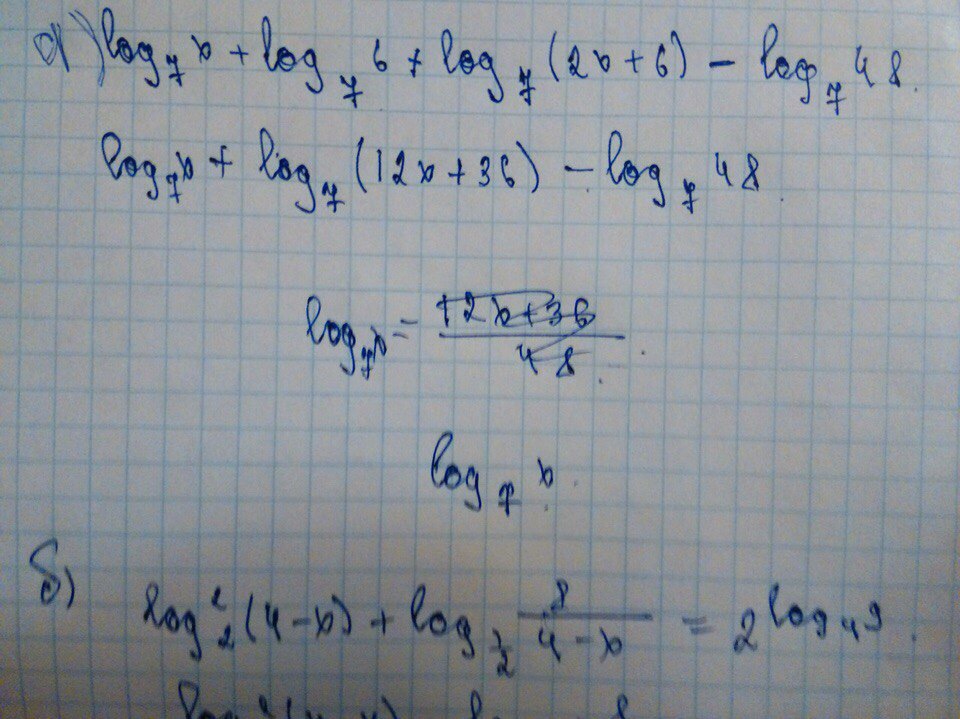 а) log₇ x + log₇ 6 + log₇ (2x + 6) − log₇ 48.
log₇ x + log₇ (12x + 36) − log₇ 48.
log₇ x = (12x + 36)/48.
log₇ x.
б) log₂² (4 − x) + log_{1/2} 8/(4 − x) = 2^{log₄ 9}.